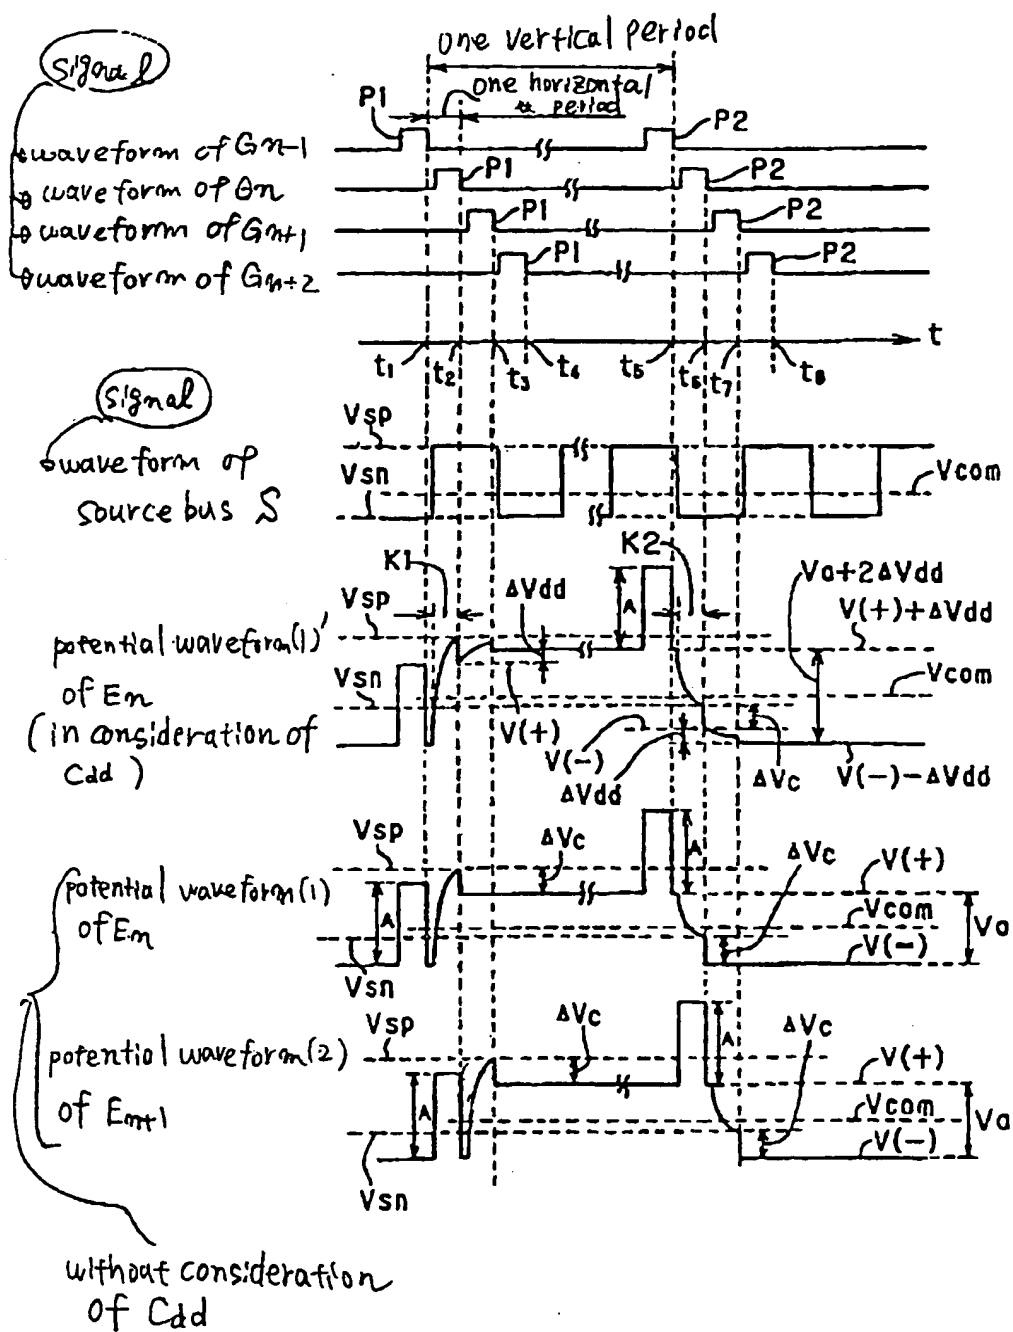 one vertical period
signal
one horizontal
period
P1
P2
waveform of Gn-1
P1
P2
waveform of Gn
P1
P2
waveform of Gn+1
P1
P2
waveform of Gn+2
t
t1 t2 t3 t4 t5 t6 t7 t8
signal
Vsp
waveform of
source bus S
Vsn
Vcom
K1
K2
ΔVdd
A
Va+2ΔVdd
Vsp
V(+)+ΔVdd
potential waveform(1)'
of En
(in consideration of
Cdd)
Vsn
Vcom
V(+)
V(-)
ΔVdd
ΔVc
V(-)-ΔVdd
Vsp
ΔVc
A
ΔVc
V(+)
potential waveform(1)
of En
A
Vcom
Va
V(-)
Vsn
Vsp
ΔVc
A
ΔVc
V(+)
potential waveform(2)
of En+1
A
Vcom
Va
V(-)
Vsn
without consideration
of Cdd